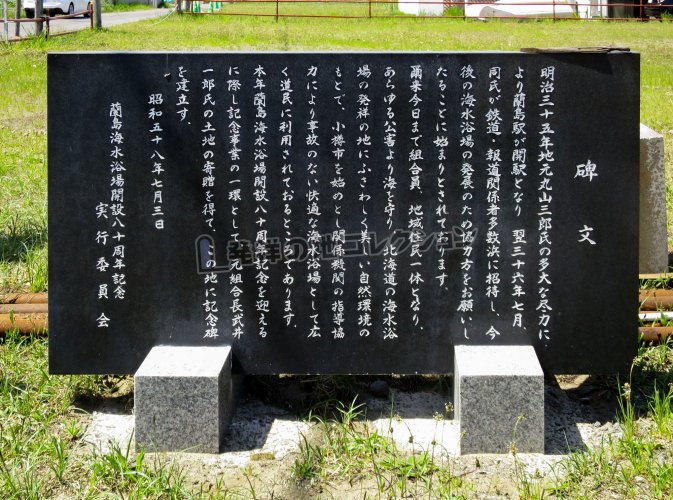 碑文
明治三十五年地元丸山三郎氏の多大な尽力に
より蘭島駅が開駅となり 翌三十六年七月、
同氏が鉄道・報道関係者多数浜に招待し、今
後の海水浴場の発展のため協力方をお願いし
たることに始まりとされております。
爾来今日まで組合員、地域住民一体となり、
あらゆる公害より海を守り、北海道の海水浴
場の発祥の地にふさわしく美しい自然環境の
もとで、小樽市を始めとし関係機関の指導協
力により事故のない快適な海水浴場として広
く道民に利用されておるところであります。
本年蘭島海水浴場開設八十周年記念を迎える
に際し記念事業の一環として、元組合長武井
一郎氏の土地の寄贈を得て、この地に記念碑
を建立す。
昭和五十八年七月三日
蘭島海水浴場開設八十周年記念
実行委員会
発祥の地コレクション